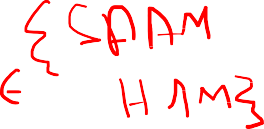 {SPAM
∈ HAM}